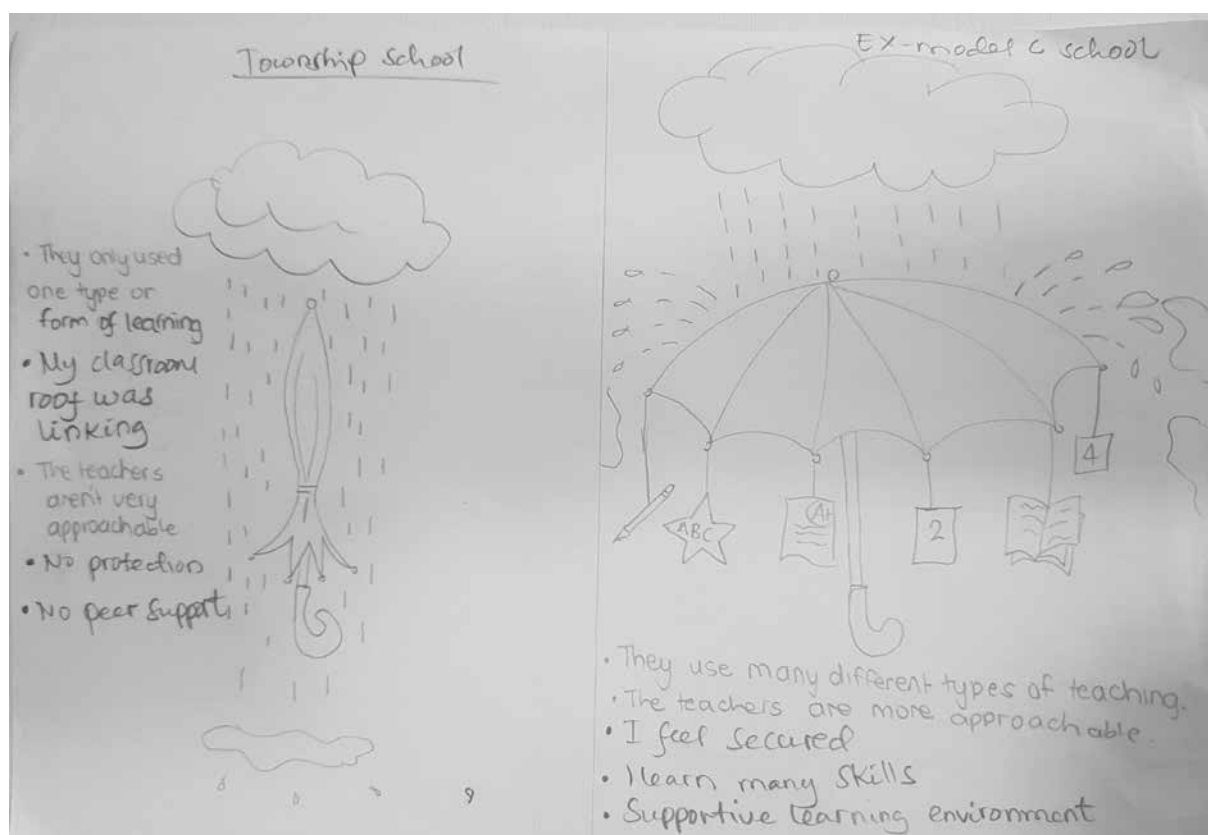 Township school
• They only used
one type or
form of learning
• My classroom
roof was
linking
• The teachers
aren't very
approachable
• No protection
• No peer support
EX-model C school
ABC
A+
2
4
• They use many different types of teaching.
• The teachers are more approachable.
• I feel secured
• I learn many skills
• Supportive learning environment